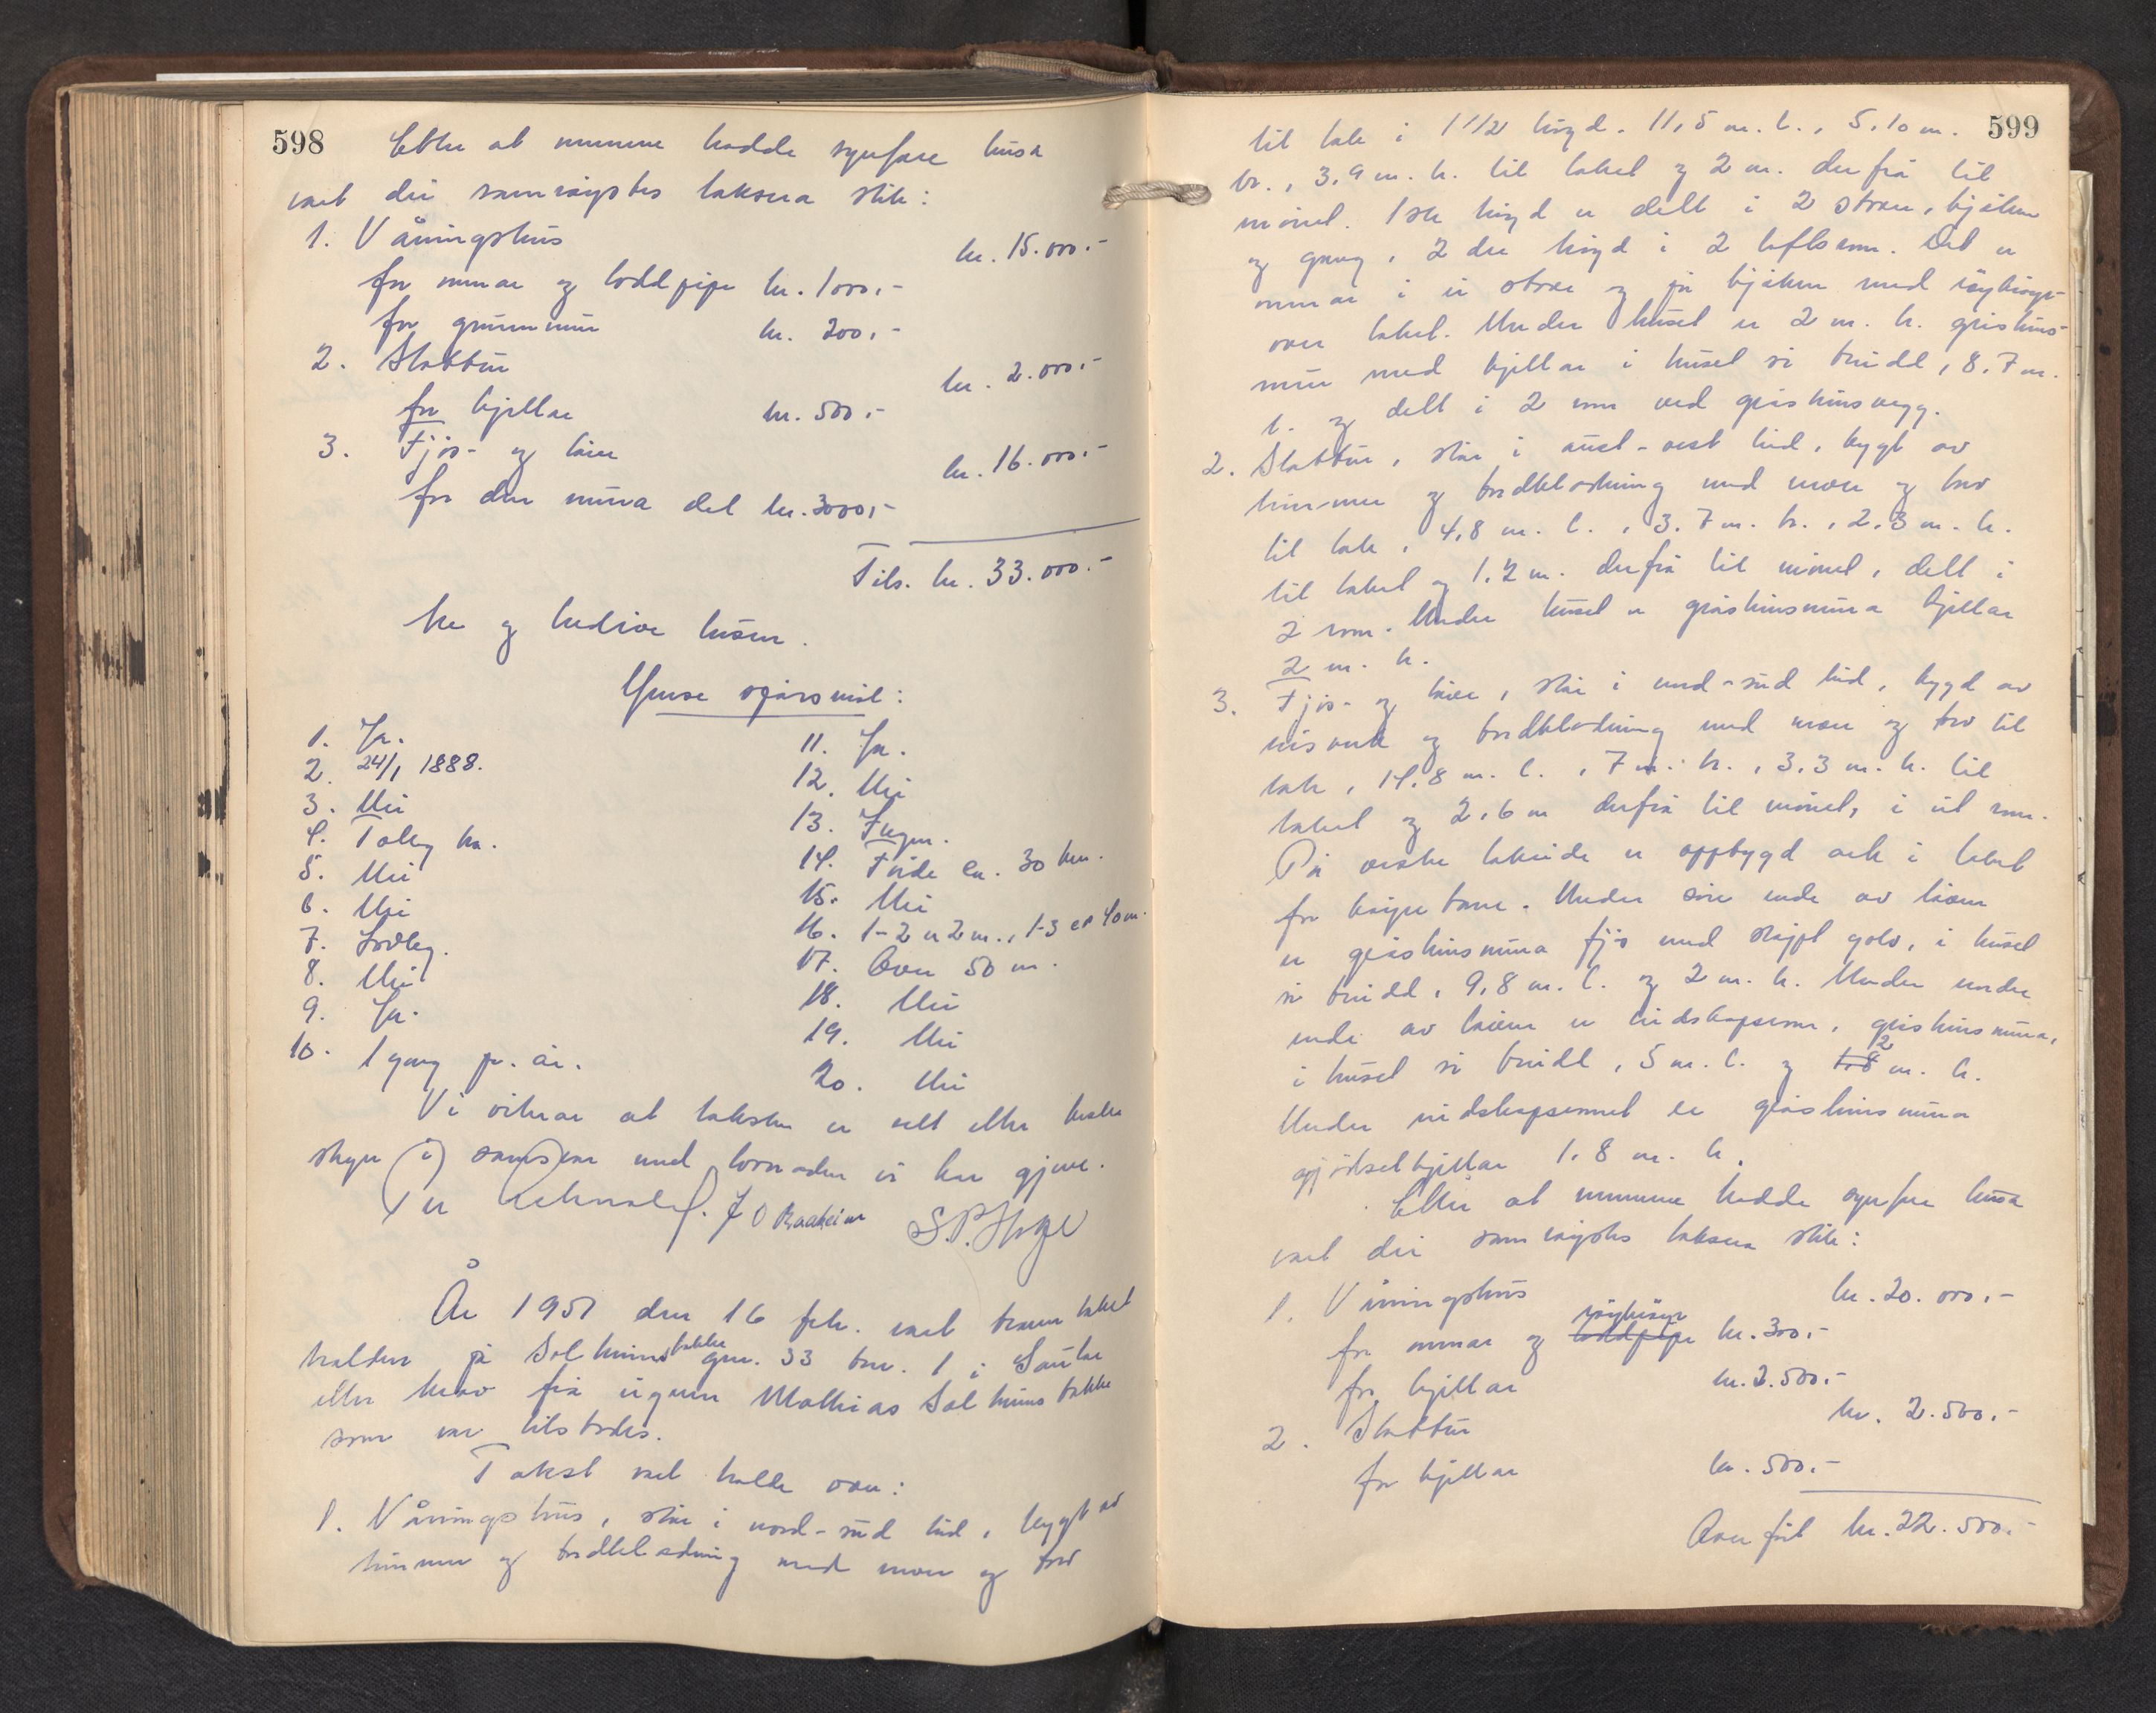 598
Etter at mennene hadde synfare husa
vart dei samrøystes taksera slik:
1. Våningshus kr. 15.000.-
for omnar og loddpipe kr. 1000,-
for grunnmur kr. 200,-
2. Stabbur kr. 2.000.-
for kjellar kr. 500,-
3. Fjøs- og løe kr. 16.000.-
for den mura del kr. 3000,-
Tils. kr. 33.000.-
tre og tredive tusen.
Ymse spørsmål:
1. Ja.
2. 24/1 1888.
3. Nei
4. Toleg bra.
5. Nei
6. Nei
7. Lovleg.
8. Nei
9. Ja.
10. 1 gong pr. år.
11. Ja.
12. Nei
13. Ingen.
14. Førde ca. 30 km.
15. Nei
16. 1-2 er 2 m., 1-3 er 40 m.
17. Over 50 m.
18. Nei
19. Nei
20. Nei
Vi vitnar at taksten er sett etter beste
skjøn i samsvar med lovnaden vi har gjeve.
J O Raaheim
År 1951 den 16 feb. vart brann takst
halden på Solheimsbakke gnr. 33 bnr. 1 i Gaular
etter krav frå eigaren Mathias Solheimsbakke
som var tilstades.
Takst vart halde over:
1. Våningshus, står i nord-sud leid, bygt av
timmer og bordkledning med never og torv
599
til tak i 1 1/2 høgd. 11,5 m. l., 5,10 m.
br., 3,9 m. h. til taket og 2 m. derfrå til
mønet. 1ste høgd er delt i 2 stover, kjøken
og gang, 2dre høgd i 2 loftsrom. Det er
omnar i ei stove og på kjøken med røykrøyr
over taket. Under huset er 2 m. h. gråsteins-
mur med kjellar i huset si breidd, 8.7 m.
l. og delt i 2 rom ved gråsteinsvegg.
2. Stabbur, står i aust-vest leid, bygt av
timmer og bordkledning med never og torv
til tak, 4,8 m. l., 3.7 m. br., 2,3 m. h.
til taket og 1,2 m. derfrå til mønet, delt i
2 rom. Under huset er gråsteinsmura kjellar
2 m. h.
3. Fjøs- og løe, står i nord-sud leid, bygd av
reisverk og bordkledning med never og torv til
tak, 14.8 m. l., 7 m. br., 3,3 m. h. til
taket og 2,6 m derfrå til mønet, i eit rom.
På vestre takside er oppbygd ark i taket
for køyrebane. Under søre ende av løem
er gråsteinsmura fjøs med støypt golv, i huset
si breidd, 9,8 m. l. og 2 m. h. Under nordre
ende av løem er reidskapsrom, gråsteinsmura,
i huset si breidd, 5 m. l. og 1.8 2 m. h.
Under reidskapsromet er gråsteinsmura
gjødselkjellar 1.8 m. h.
Etter at mennene hadde synfare husa
vart dei samrøystes taksera slik:
1. Våningshus kr. 20.000,-
for omnar og loddpipe røykrøyr kr. 300,-
for kjellar kr. 2.500.-
2. Stabbur kr. 2.500.-
for kjellar kr. 500.-
Overført kr. 22.500.-